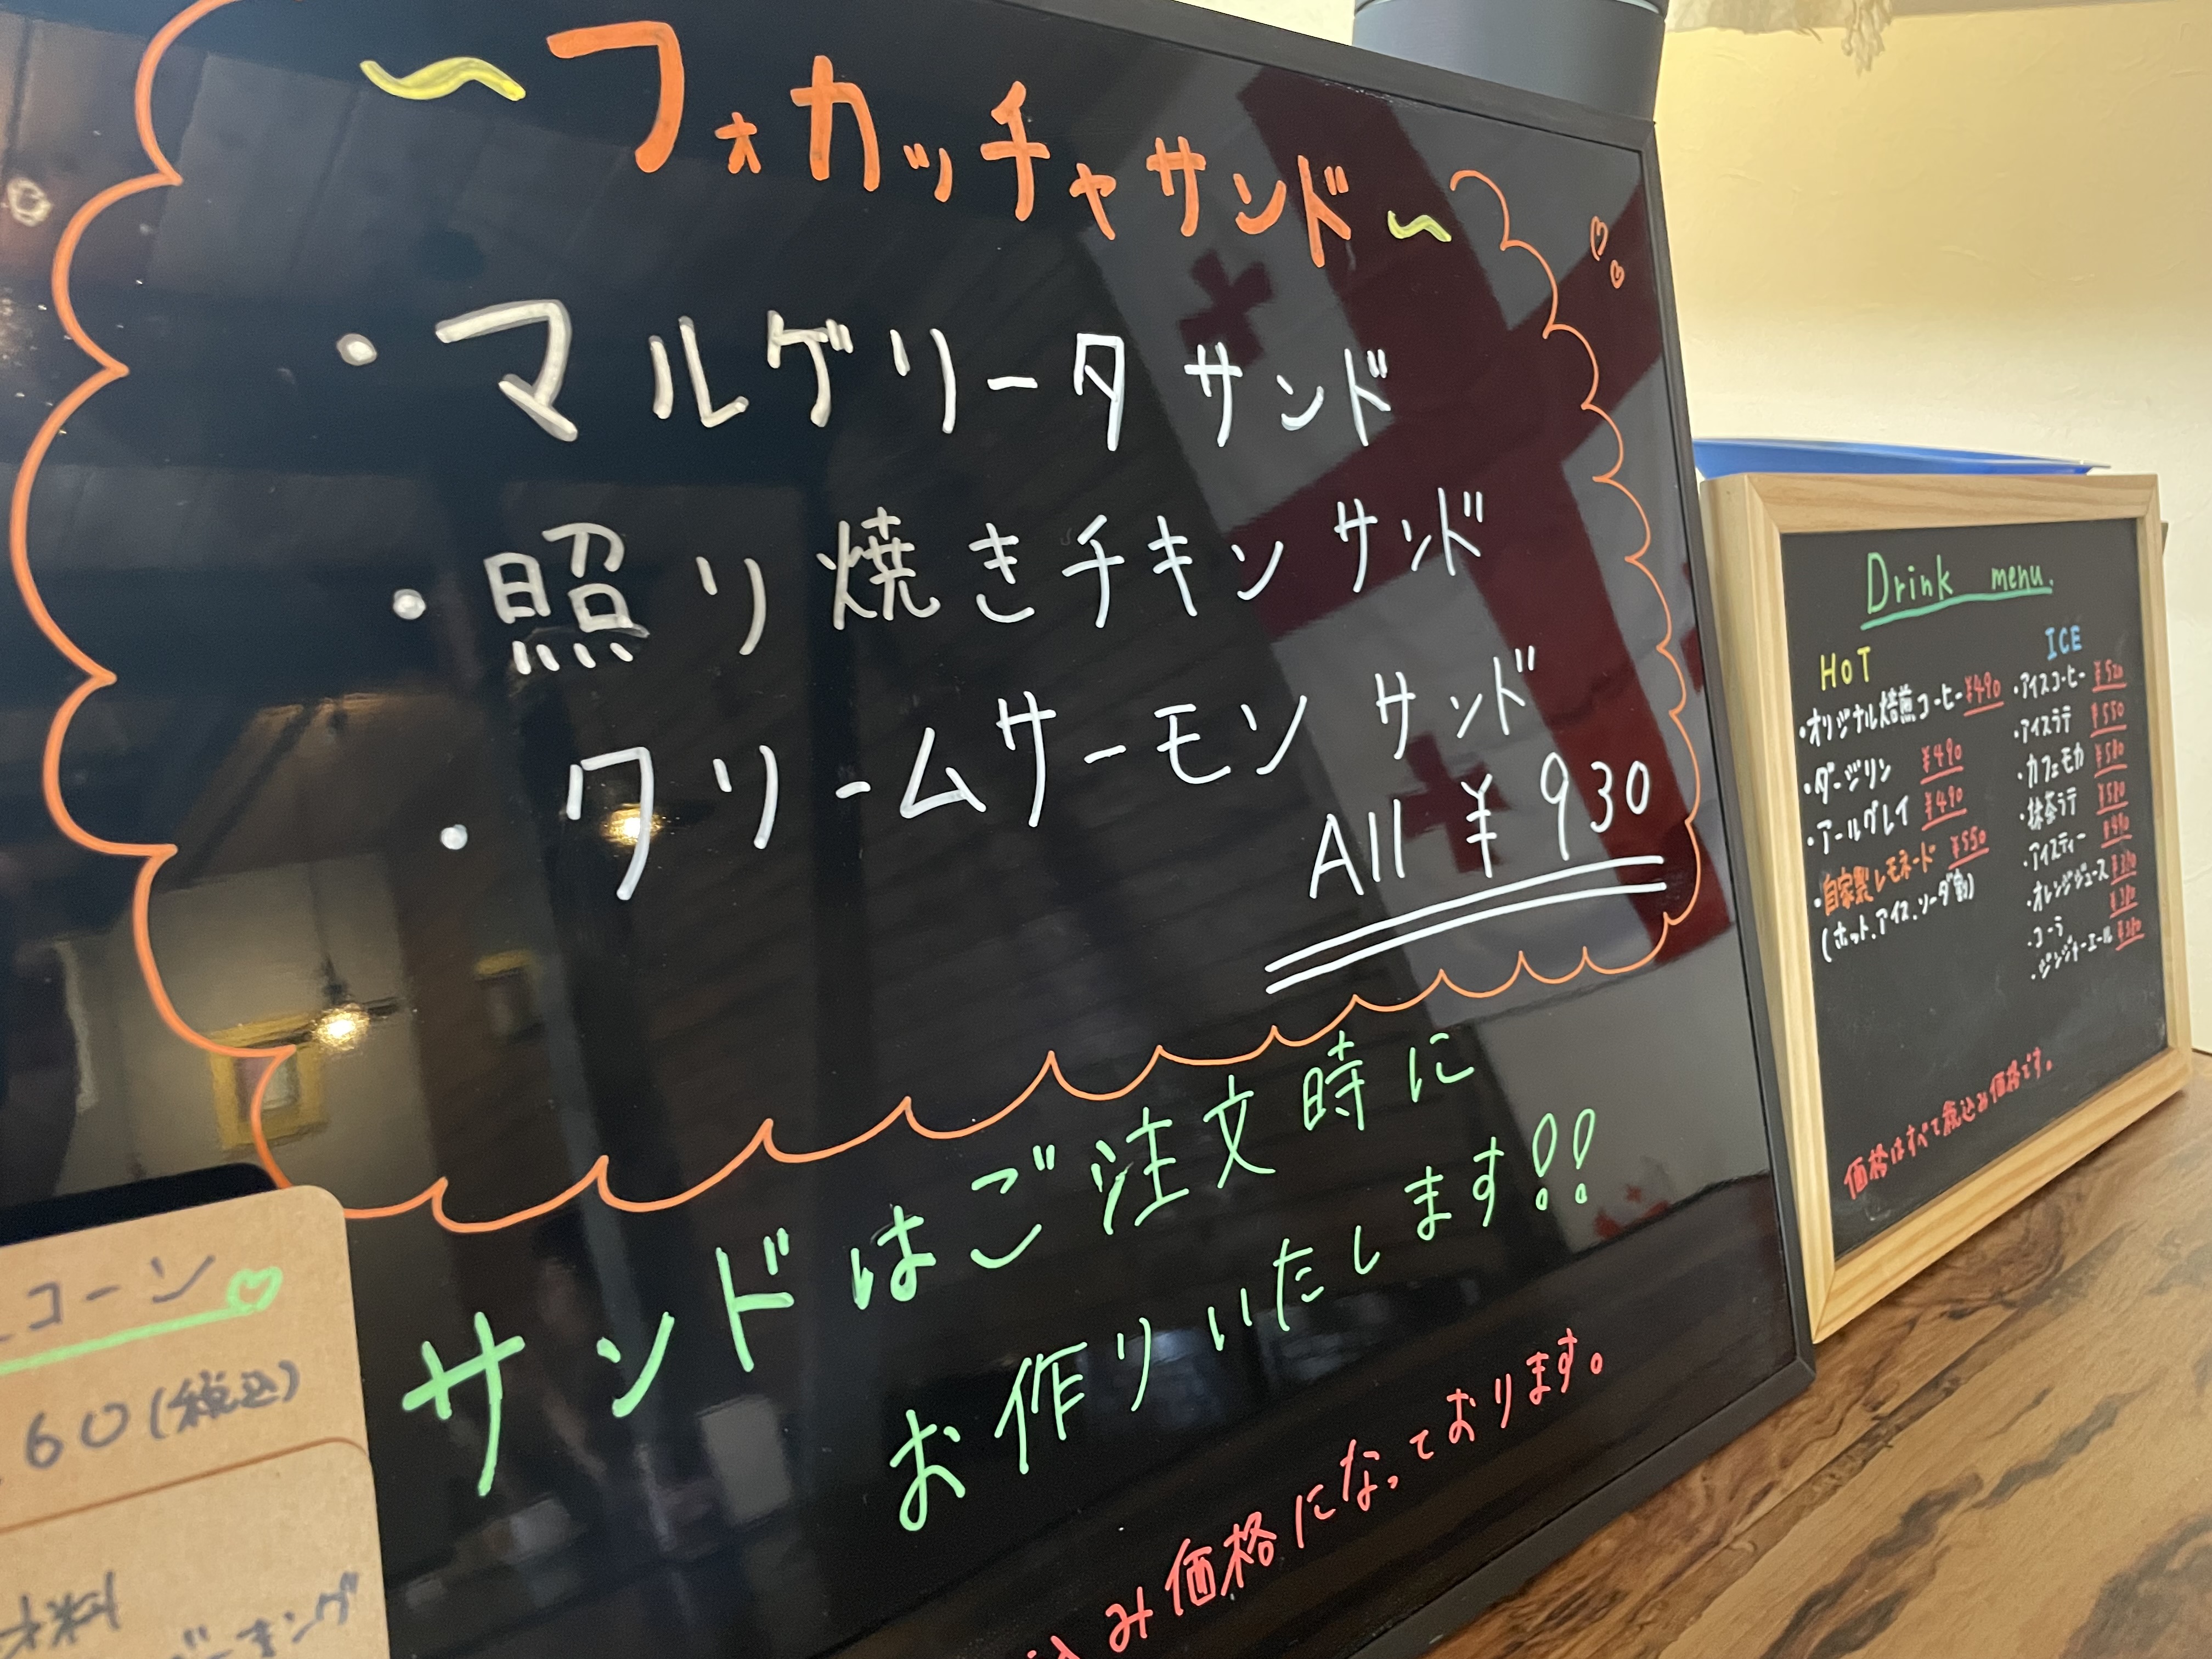 〜フォカッチャサンド〜
・マルゲリータサンド
・照り焼きチキンサンド
・クリームサーモンサンド
All ¥930
サンドはご注文時に
お作りいたします!!
込み価格になっております。
コーン
60(税込)
材料
Drink menu.
HOT
・オリジナル焙煎コーヒー ¥490
・ダージリン ¥490
・アールグレイ ¥490
・自家製レモネード ¥550
(ホット、アイス、ソーダ割)
ICE
・アイスコーヒー ¥520
・アイスラテ ¥550
・カフェモカ ¥580
・抹茶ラテ ¥580
・アイスティー
・オレンジジュース
・コーラ
・ジンジャーエール
価格はすべて税込み価格です。